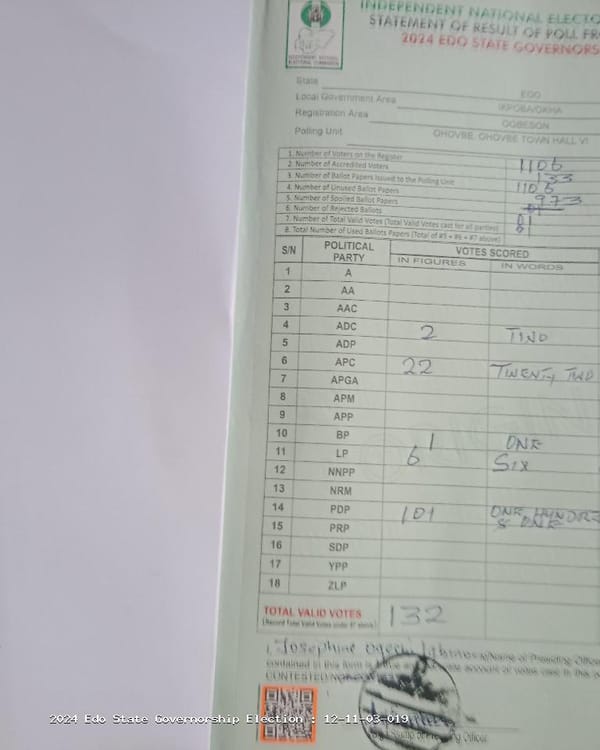 INDEPENDENT NATIONAL ELECTO
STATEMENT OF RESULT OF POLL FR
2024 EDO STATE GOVERNORS
INDEPENDENT NATIONAL
ELECTORAL COMMISSION
State EDO
Local Government Area IKPOBA/OKHA
Registration Area OGBESON
Polling Unit OHOVBE, OHOVBE TOWN HALL VI
1. Number of Voters on the Register 1106
2. Number of Accredited Voters 133
3. Number of Ballot Papers Issued to the Polling Unit 1106
4. Number of Unused Ballot Papers 973
5. Number of Spoiled Ballot Papers
6. Number of Rejected Ballots
7. Number of Total Valid Votes (Total Valid Votes cast for all parties)
8. Total Number of Used Ballots Papers (Total of #5 + #6 + #7 above)
S/N POLITICAL PARTY VOTES SCORED
IN FIGURES IN WORDS
1 A
2 AA
3 AAC
4 ADC 2 TWO
5 ADP
6 APC 22 TWENTY TWO
7 APGA
8 APM
9 APP
10 BP 1 ONE
11 LP 6 SIX
12 NNPP
13 NRM
14 PDP 101 ONE HUNDRE
& ONE
15 PRP
16 SDP
17 YPP
18 ZLP
TOTAL VALID VOTES 132
(Record Total Valid Votes under #7 above)
I, Josephine
contained in this form is
CONTESTED
2024 Edo State Governorship Election : 12-11-03-019